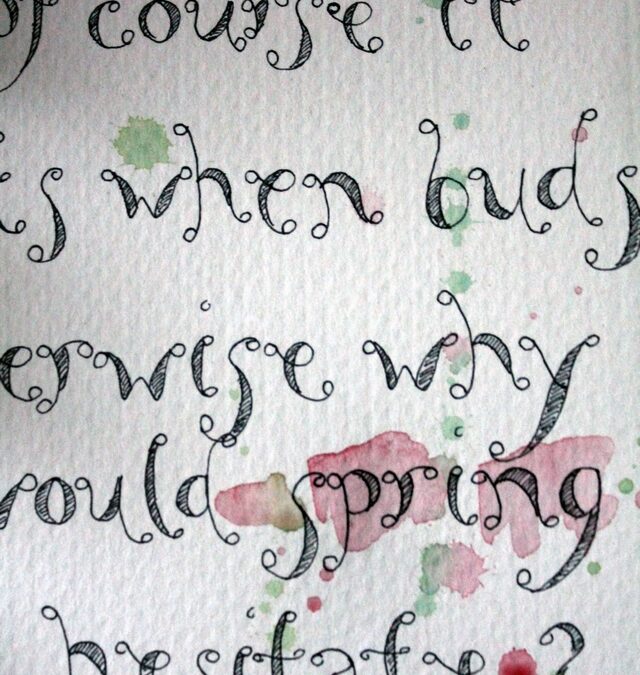 of course it
is when buds
erwise why
would spring
hesitate?